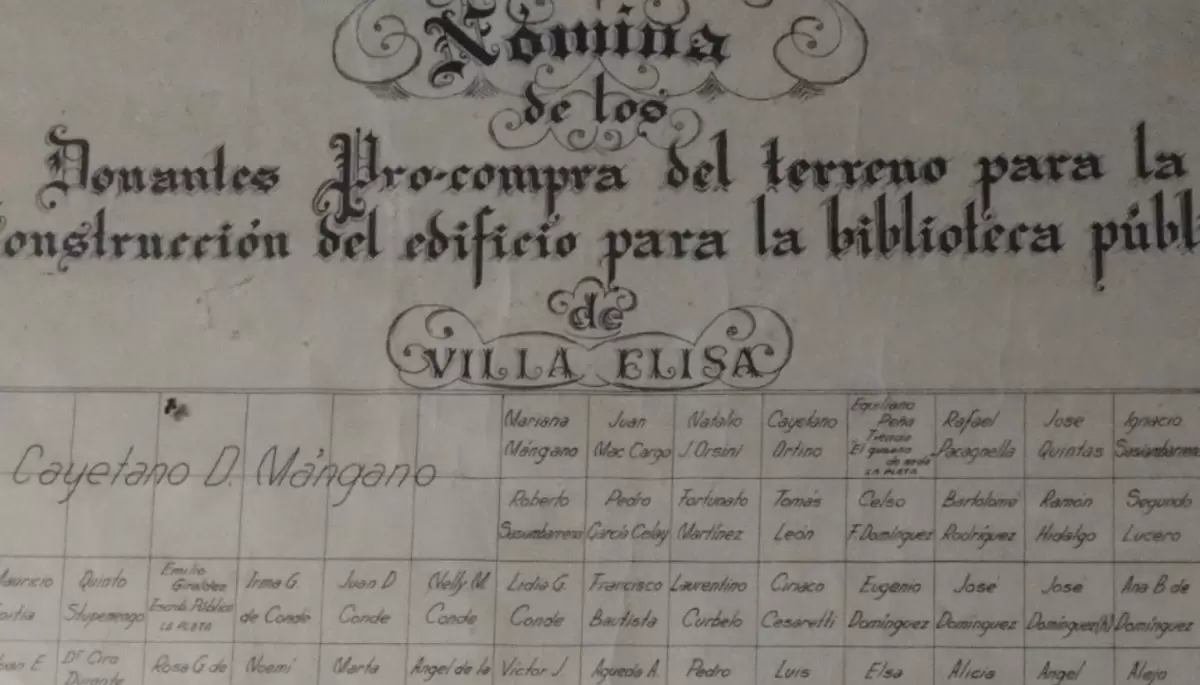 Nómina
de los
Donantes Pro-compra del terreno para la
onstrucción del edificio para la biblioteca públ
de
VILLA ELISA
Mariana Juan Natalio Cayetano Equiliano Peña Rafael Jose Ignacio
Cayetano D. Mángano
Mángano Mac Cargo J. Orsini Ortino "El de seda LA PLATA Pacagnella Quintas
Roberto Pedro Fortunato Tomás Celso Bartolomé Ramón Segundo
García Celay Martínez León F. Domínguez Rodríguez Hidalgo Lucero
auricio Quinto Emilio Irma G. Juan D Nelly M. Lidia G. Francisco Laurentino Ciriaco Eugenio José José Ana B de
Público LA PLATA de Conde Conde Conde Conde Bautista Curbelo Cesaretti Domínguez Domínguez Domínguez(h) Domínguez
E Dr Ciro Durante Rosa G de Noemí Marta Angel de la Victor J. Agueda A. Pedro Luis Elsa Alicia Angel Alejo